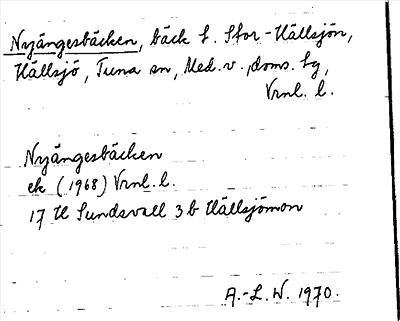 Nyängesbäcken, bäck f. Stor-Hällsjön,
Hällsjö, Tuna sn, Med. v., doms. lg,
Vrnl. l.
Nyängesbäcken
ek (1968) Vrnl. l.
17 H Sundsvall 3 b Hällsjömon
A.-L. W. 1970.